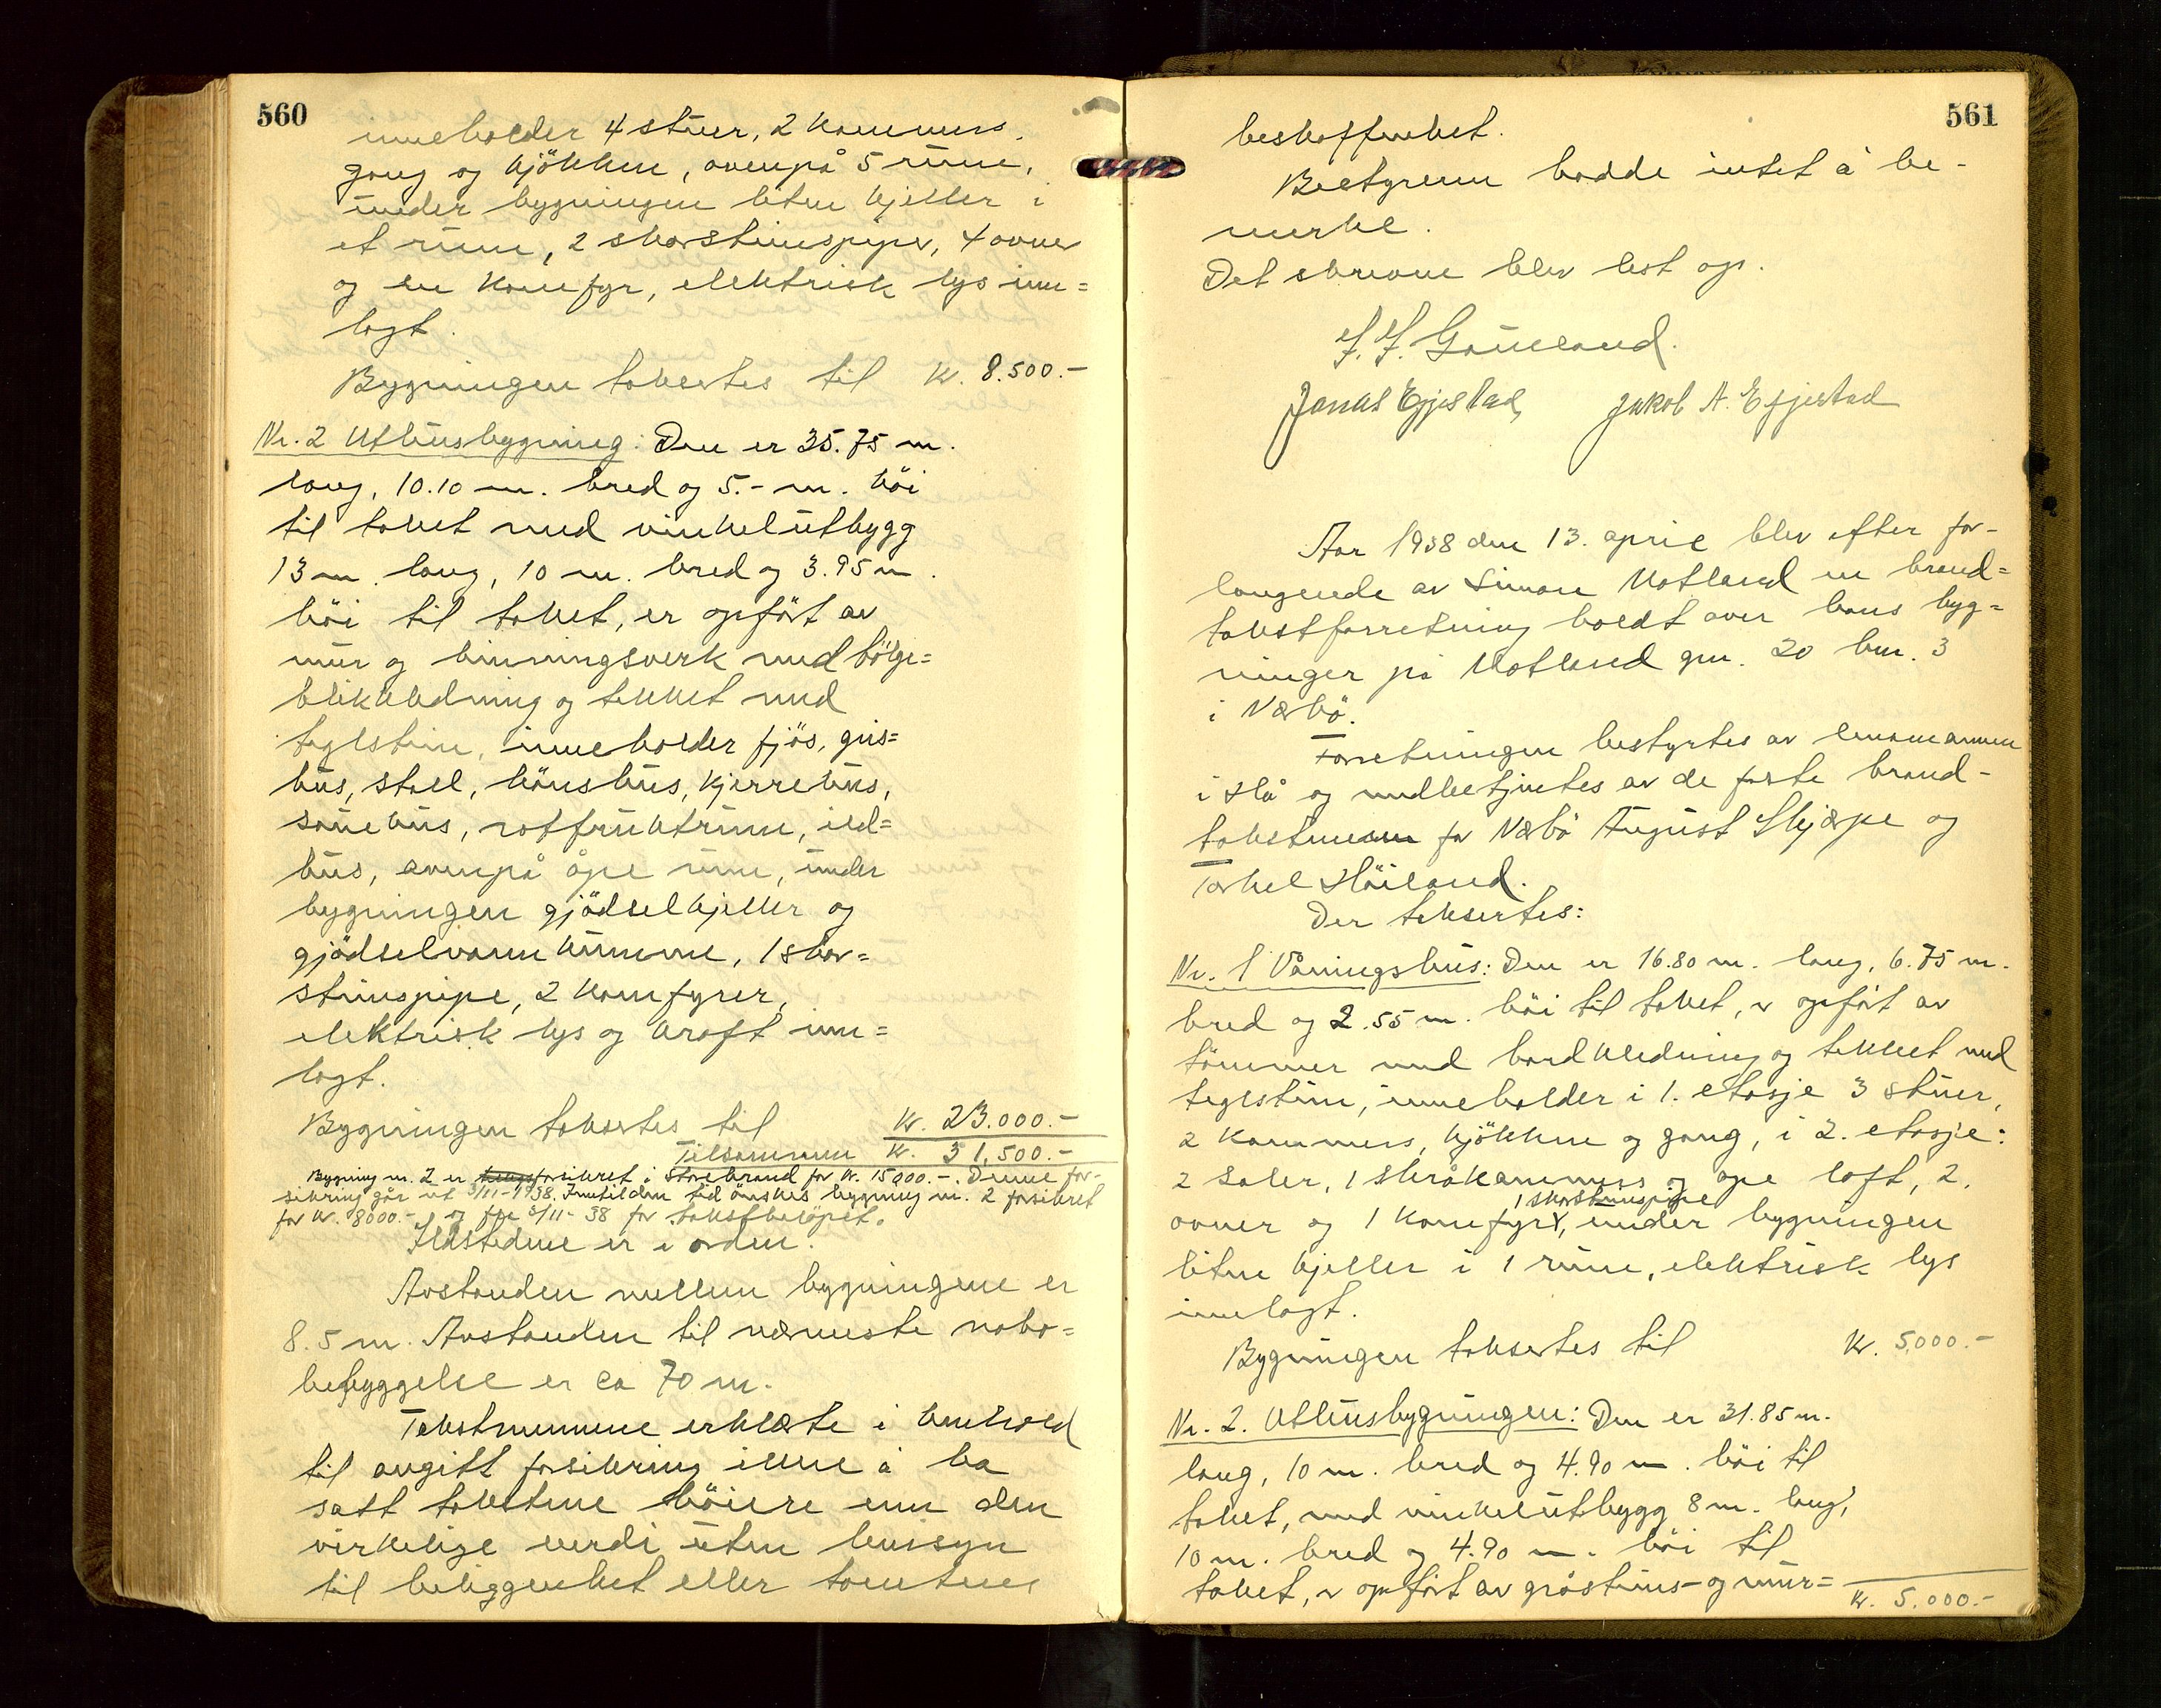 560
inneholder 4 stuer, 2 kammers,
gang og kjökken, ovenpå 5 rum,
under bygningen liten kjeller i
et rum, 2 skorstenspiper, 4 ovner
og en komfyr, elektrisk lys inn=
lagt.
Bygningen takseres til kr. 8.500.-
Nr. 2 Uthusbygning: Den er 35.75 m.
lang, 10.10 m. bred og 5.- m. höi
til taket med vinkelutbygg
13 m. lang, 10 m. bred og 3.95 m.
höi til taket, er opfört av
mur og binningsverk med bölge=
blikkledning og tekket med
teglsten, inneholder fjös, gris=
hus, stall, hönshus, kjerrehus,
sauehus, rotfruktrum, ild=
hus, ovenpå åpe rum, under
bygningen gjödselkjeller og
gjödselvannkumme, 1 skor=
stenspipe, 2 komfyrer,
elektrisk lys og kraft inn=
lagt.
Bygningen takseres til kr. 23.000.-
Tilsammen kr. 31,500.-
Bygning nr. 2 er forsikret i Storebrand for kr. 15000.-. Denne for-
sikring går ut 3/11-1938. Inntil den tid önskes bygning nr. 2 forsikret
for kr. 8000.- og fra 3/11-38 for takstbelöpet.
Ildstedene er i orden.
Avstanden mellem bygningene er
8.5 m. Avstanden til nærmeste nabo=
bebyggelse er ca 70 m.
Takstmennene erklærte i henhold
til avgitt forsikring ikke å ha
satt takstene höiere enn den
virkelige verdi uten hensyn
til beliggenhet eller tomtens
561
beskaffenhet.
Bestyreren hadde intet å be-
merke.
Det skrevne blev lest op.
J. J. Gaueland.
Jonas Egjestad, Jakob A. Egjestad
Aar 1938 den 13. april blev efter for-
langende av Simon Motland en brand=
takstforretning holdt over hans byg=
ninger på Motland gnr. 20 bnr. 3
i Nærbö.
Forretningen bestyrtes av lensmannen
i Hå og medbetjentes av de faste brand-
takstmenn for Nærbö August Skjærpe og
Torkel Höiland.
Der takseres:
Nr. 1 Våningshus: Den er 16.80 m. lang, 6.75 m.
bred og 2.55 m. höi til taket, er opfört av
tömmer med bordkledning og tekket med
teglsten, inneholder i 1. etasje 3 stuer,
2 kammers, kjökken og gang, i 2. etasje:
2 saler, 1 skråkammers og ope loft, 2.
1 skorstenspipe
ovner og 1 komfyr, under bygningen
liten kjeller i 1 rum, elektrisk lys
innlagt.
Bygningen takseres til kr. 5.000.-
Nr. 2. Uthusbygningen: Den er 31.85 m.
lang, 10 m. bred og 4.90 m. höi til
taket, med vinkelutbygg 8 m. lang,
10 m. bred og 4.90 m. höi til
taket, er opfört av gråstens- og mur=
kr. 5.000.-